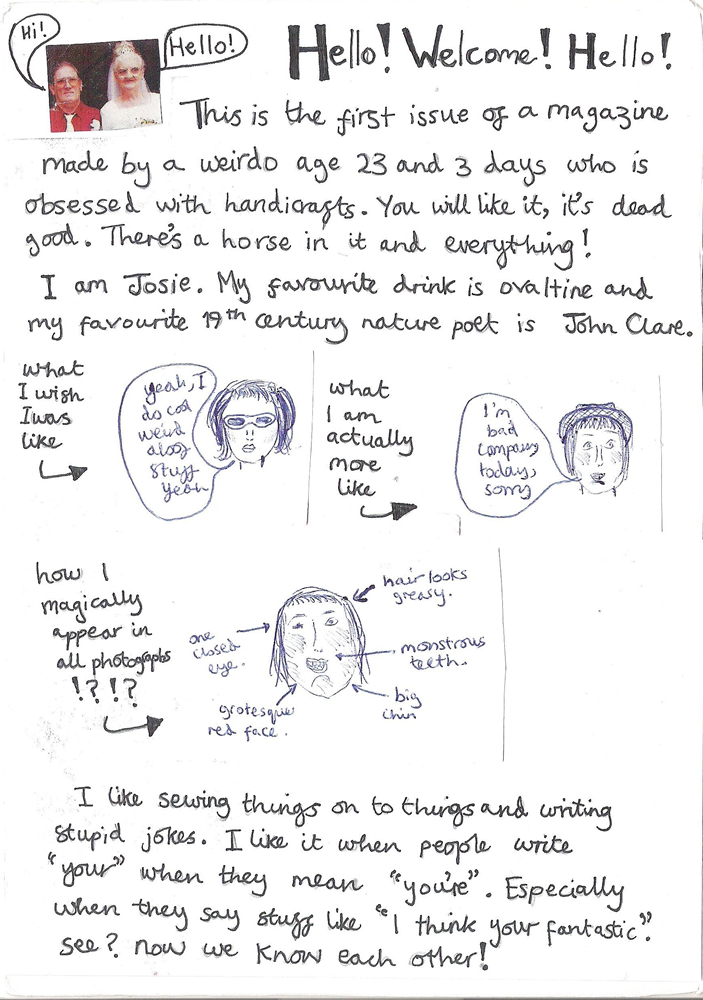 Hi!
Hello!
Hello! Welcome! Hello!
This is the first issue of a magazine
made by a weirdo age 23 and 3 days who is
obsessed with handicrafts. You will like it, it's dead
good. There's a horse in it and everything!
I am Josie. My favourite drink is ovaltine and
my favourite 19th century nature poet is John Clare.
what
I wish
I was
like
yeah, I
do cool
weird
stuff
yeah
what
I am
actually
more
like
I'm
bad
company
today,
sorry
how I
magically
appear in
all photographs
!?!?
hair looks
greasy.
one
closed
eye.
monstrous
teeth.
grotesque
red face.
big
chin
I like sewing things on to things and writing
stupid jokes. I like it when people write
"your" when they mean "you're". Especially
when they say stuff like "I think your fantastic".
see? now we know each other!